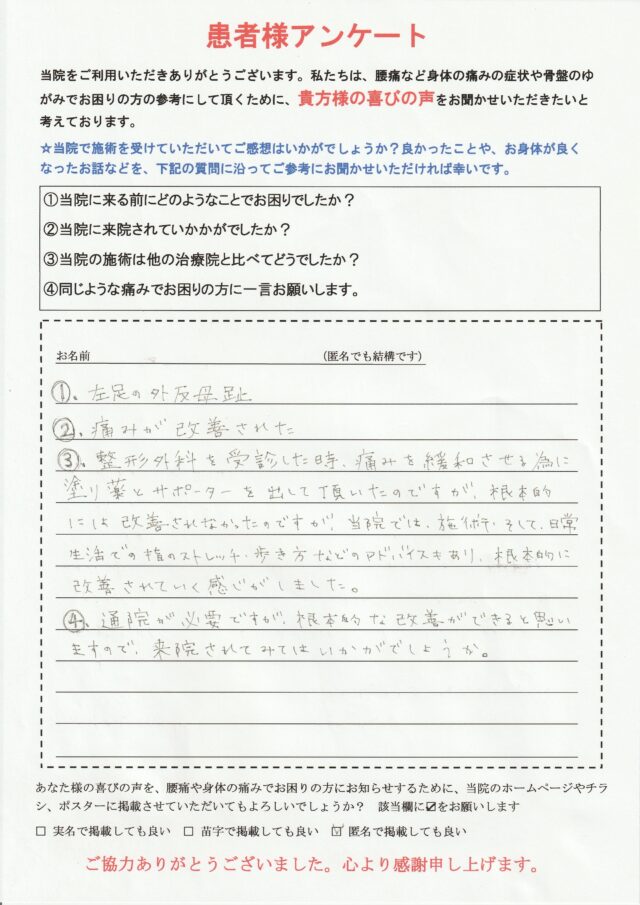 患者様アンケート
当院をご利用いただきありがとうございます。私たちは、腰痛など身体の痛みの症状や骨盤のゆ
がみでお困りの方の参考にして頂くために、貴方様の喜びの声をお聞かせいただきたいと
考えております。
☆当院で施術を受けていただいてご感想はいかがでしょうか？良かったことや、お身体が良く
なったお話などを、下記の質問に沿ってご参考にお聞かせいただければ幸いです。
①当院に来る前にどのようなことでお困りでしたか？
②当院に来院されていかかがでしたか？
③当院の施術は他の治療院と比べてどうでしたか？
④同じような痛みでお困りの方に一言お願いします。
お名前 (匿名でも結構です)
①、左足の外反母趾
②、痛みが改善された
③、整形外科を受診した時、痛みを緩和させる為に
塗り薬とサポーターを出して頂いたのですが、根本的
には改善されなかったのですが、当院では、施術、そして、日常
生活での指のストレッチ・歩き方などのアドバイスもあり、根本的に
改善されていく感じがしました。
④、通院が必要ですが、根本的な改善ができると思い
ますので、来院されてみてはいかがでしょうか。
あなた様の喜びの声を、腰痛や身体の痛みでお困りの方にお知らせするために、当院のホームページやチラ
シ、ポスターに掲載させていただいてもよろしいでしょうか？ 該当欄に☑をお願いします
☐ 実名で掲載しても良い ☐ 苗字で掲載しても良い ☑ 匿名で掲載しても良い
ご協力ありがとうございました。心より感謝申し上げます。